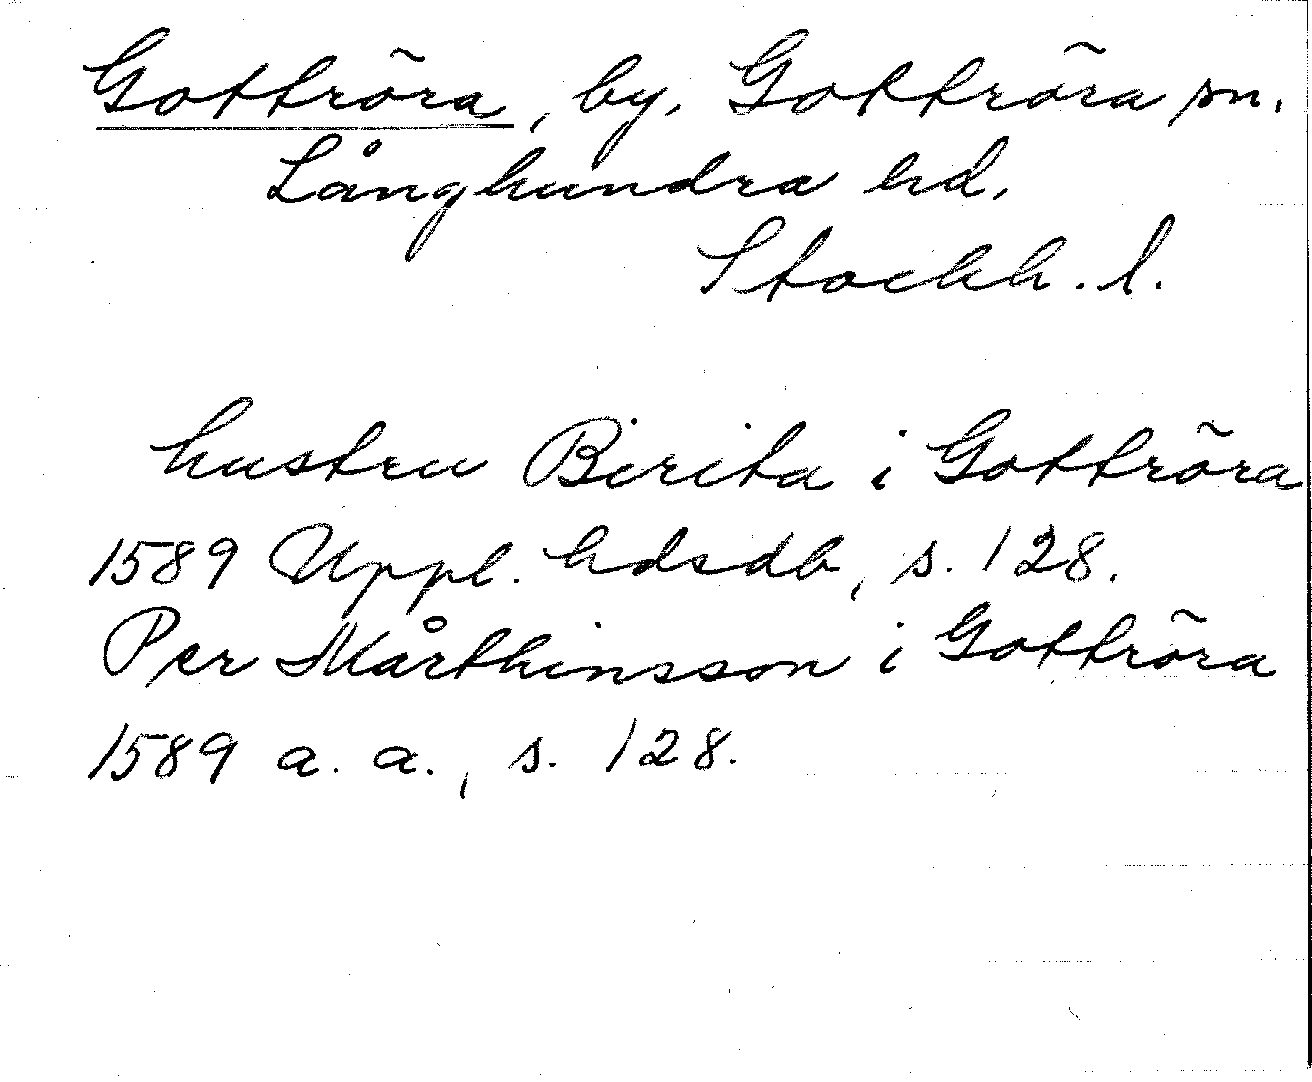 Gottröra, by, Gottröra sn.
Långhundra hd,
Stockh. l.
hustru Birita i Gottröra
1589 Uppl. hdsdb, s. 128.
Per Mårthinsson i Gottröra
1589 a. a., s. 128.